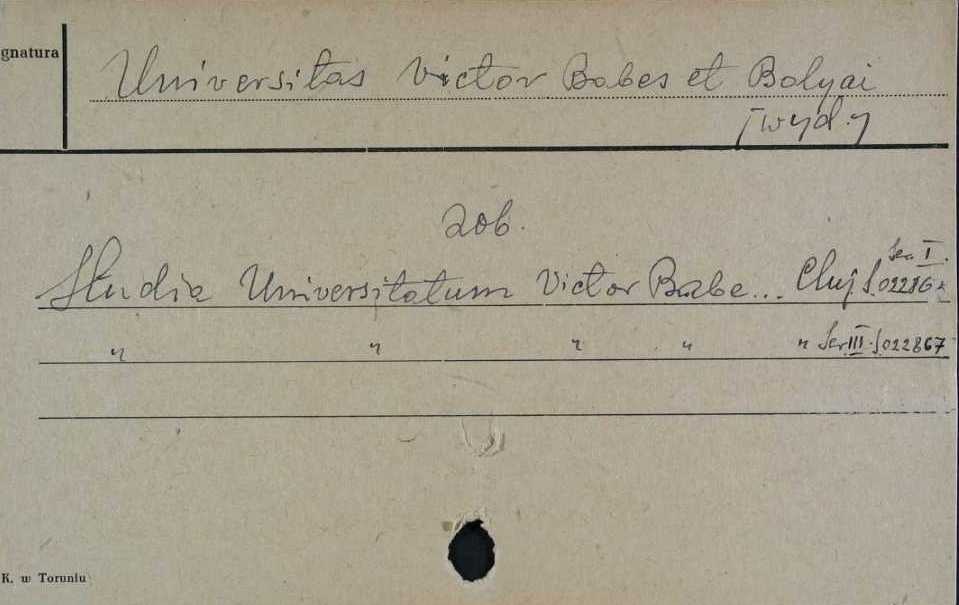 gnatura
Universitas Victor Babes et Bolyai
[wyd.]
zob.
Studia Universitatum Victor Babe... Cluj Ser I. S.02286
" " " " " Ser III. S.022867
K. w Toruniu